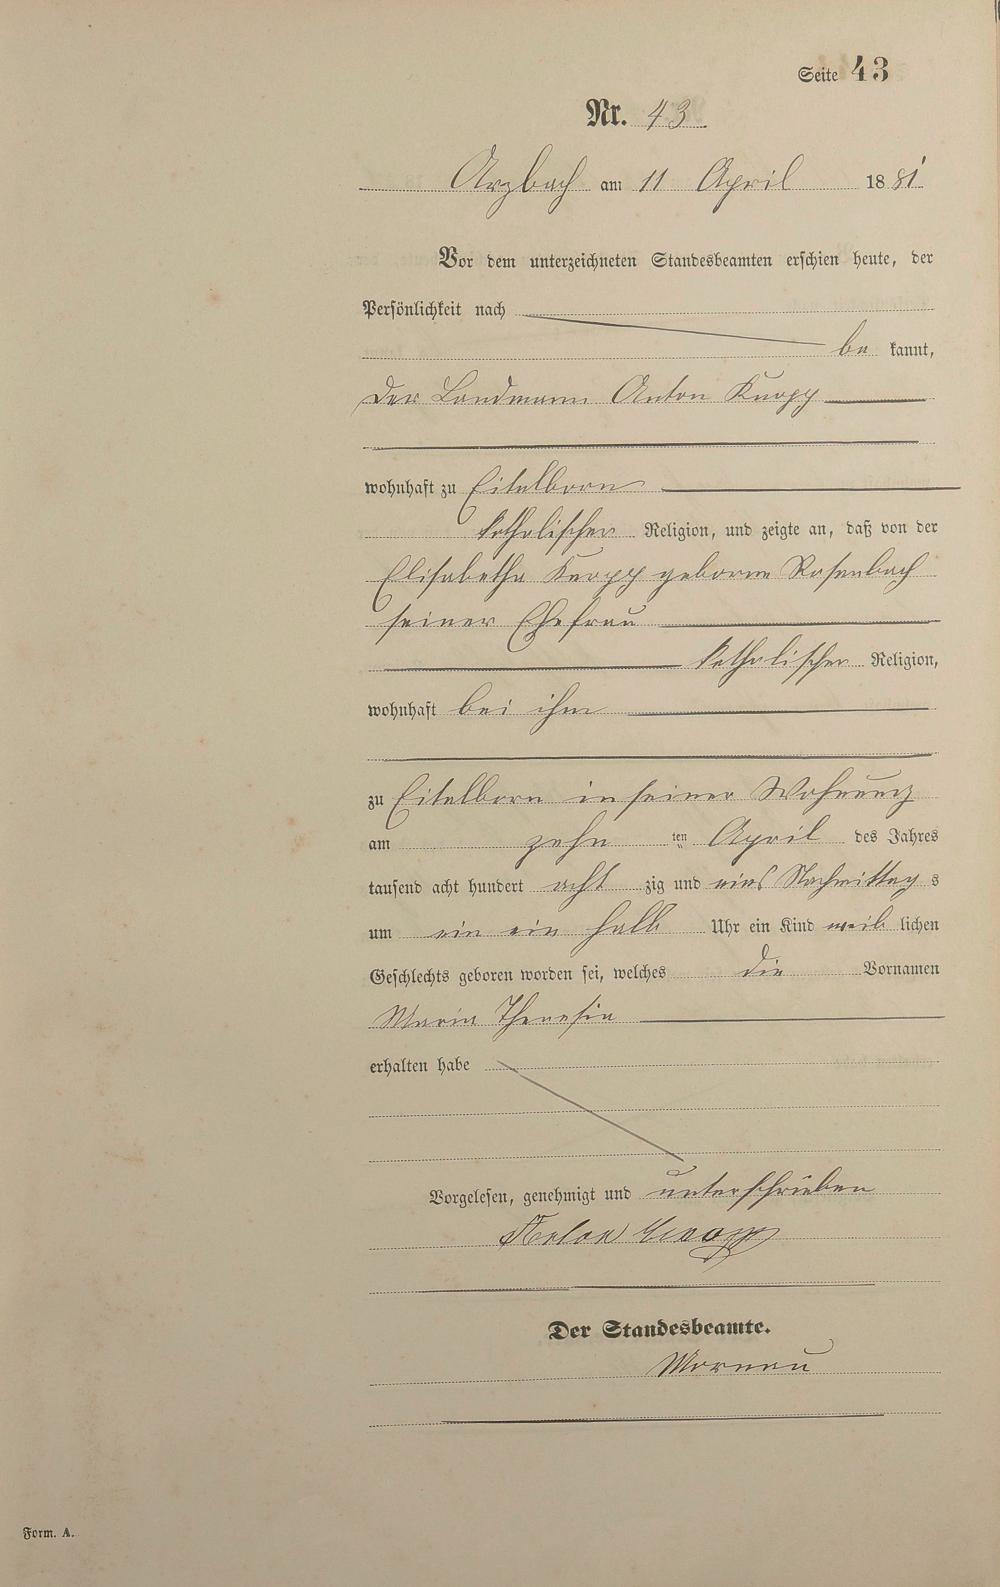 Seite 43
Nr. 43
Arzbach am 11 April 1881
Vor dem unterzeichneten Standesbeamten erschien heute, der
Persönlichkeit nach
be kannt,
der Landmann Anton Knopp
wohnhaft zu Eitelborn
katholischer Religion, und zeigte an, daß von der
Elisabetha Knopp geborne Rosenbach
seiner Ehefrau
katholischer Religion,
wohnhaft bei ihm
zu Eitelborn in seiner Wohnung
am zehn ten April des Jahres
tausend acht hundert acht zig und eins Nachmittag s
um ein ein halb Uhr ein Kind weib lichen
Geschlechts geboren worden sei, welches die Vornamen
Maria Theresia
erhalten habe
Vorgelesen, genehmigt und unterschrieben
Anton Knopp
Der Standesbeamte.
Form. A.